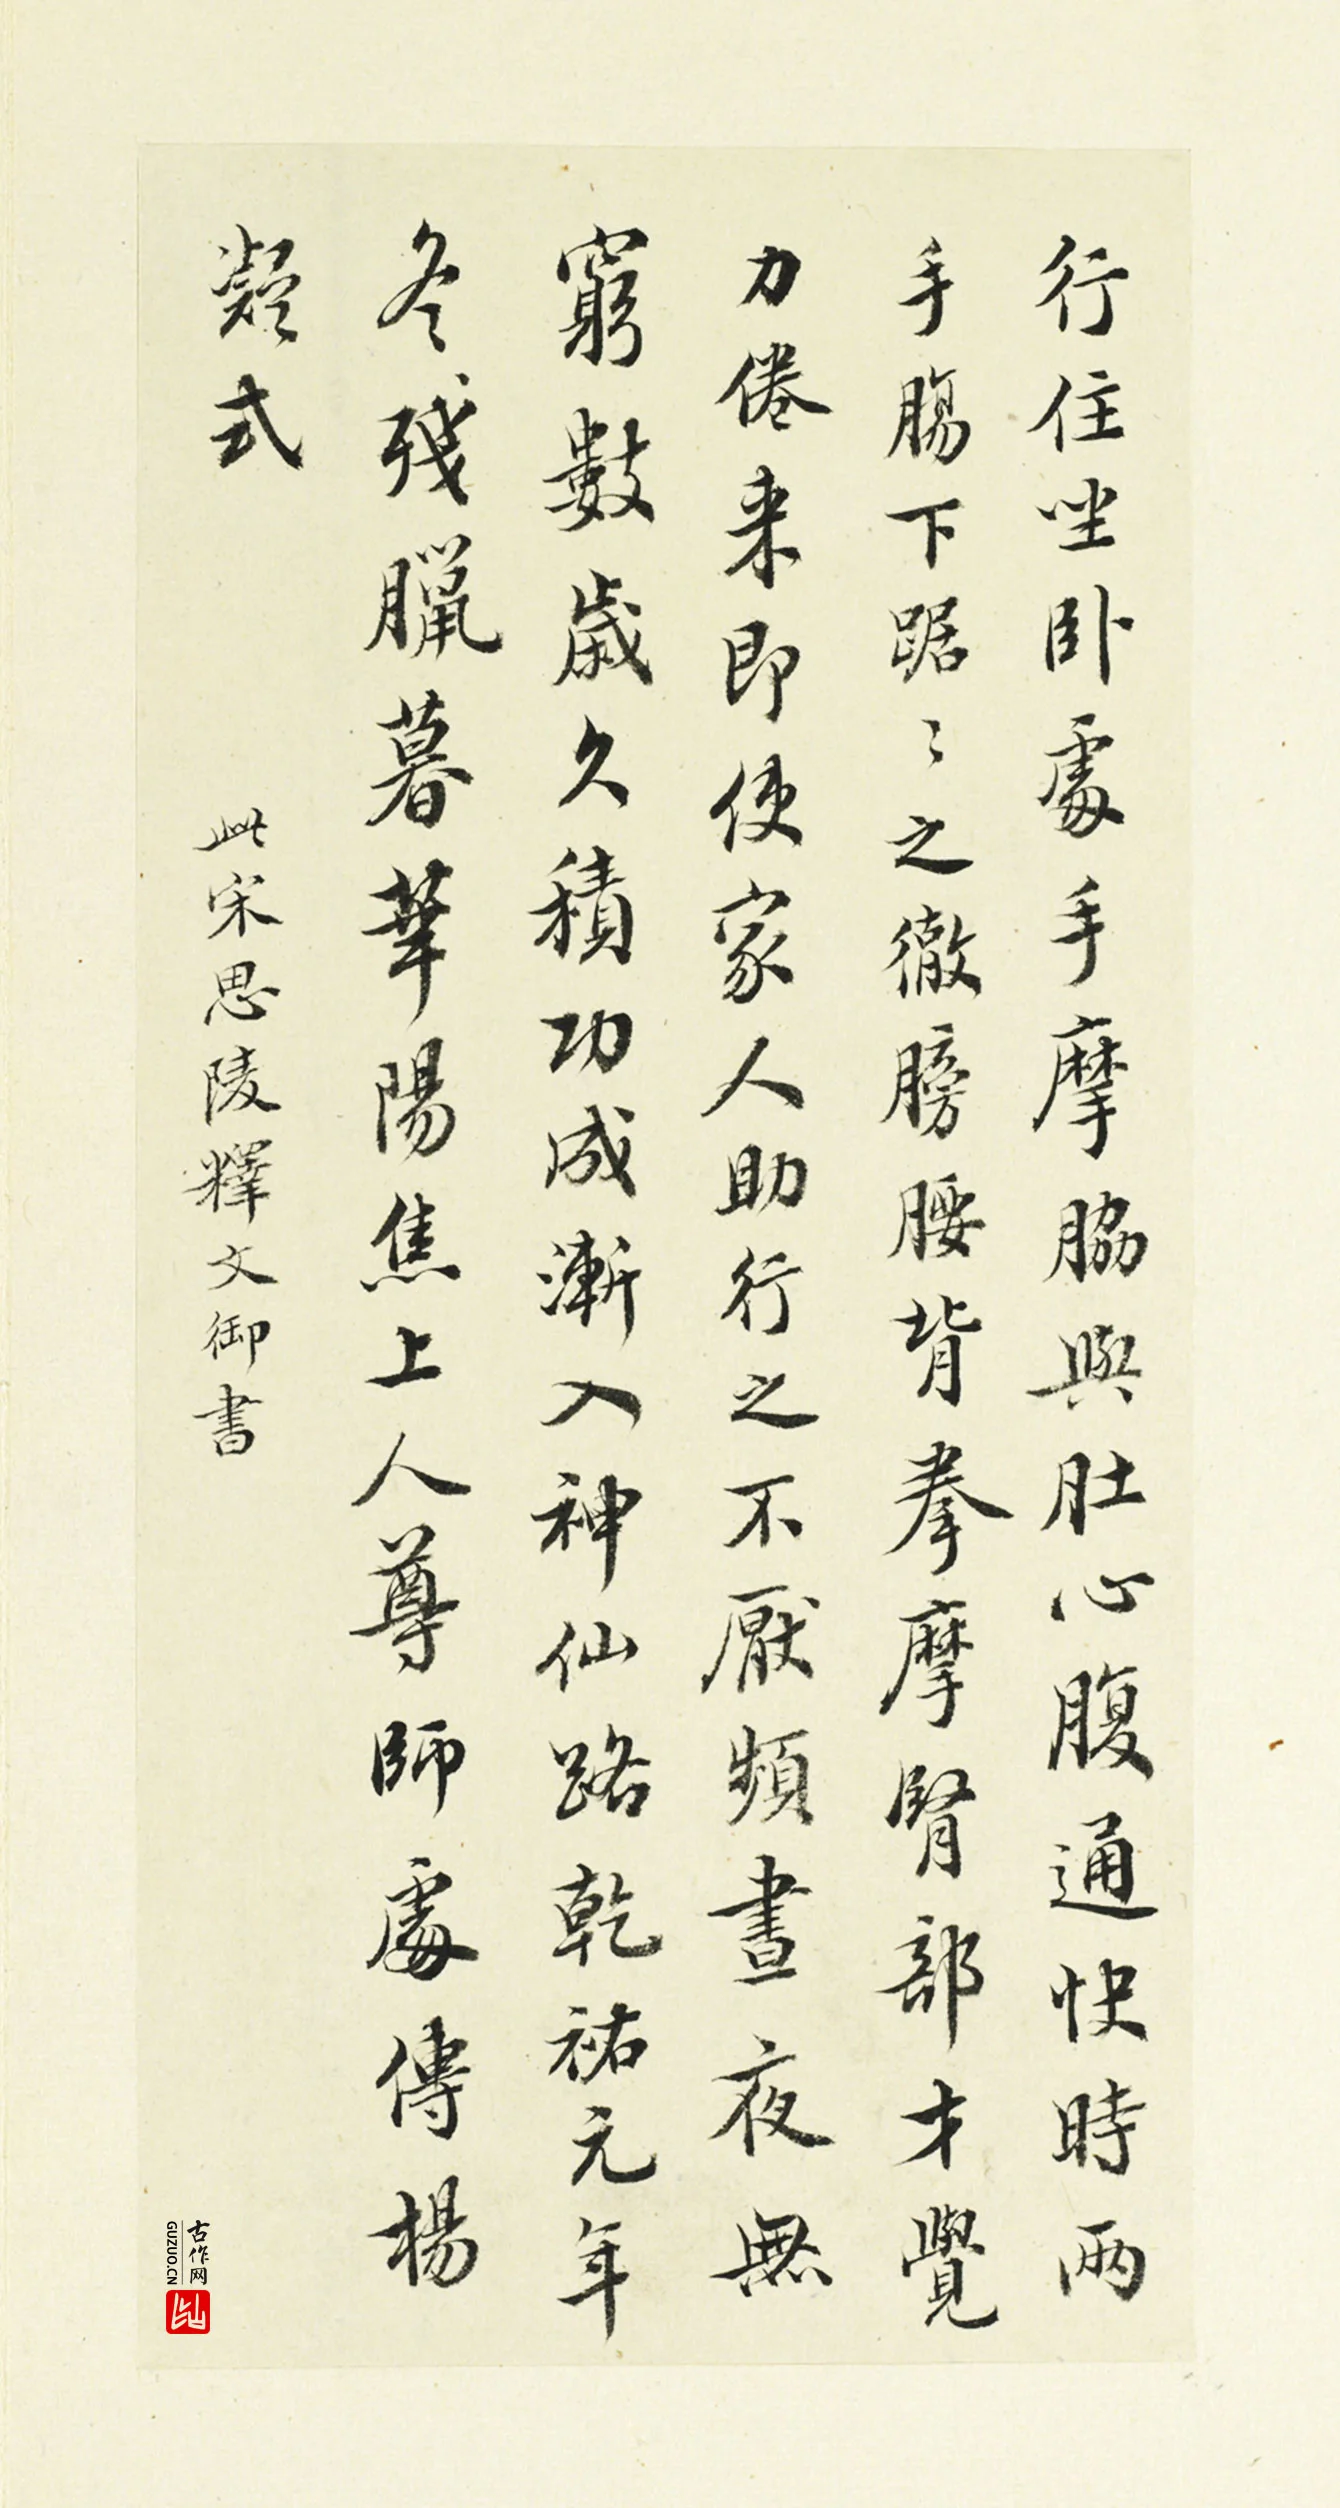 行住坐卧處手摩脇與肚心腹通快時兩
手腸下踞〻之徹膀腰背拳摩腎部才覺
力倦来即使家人助行之不厭頻晝夜無
窮數歲久積功成漸入神仙路乾祐元年
冬殘臘暮華陽焦上人尊師處傳楊
凝式
此宋思陵釋文御書
古作网
GUZUO.CN